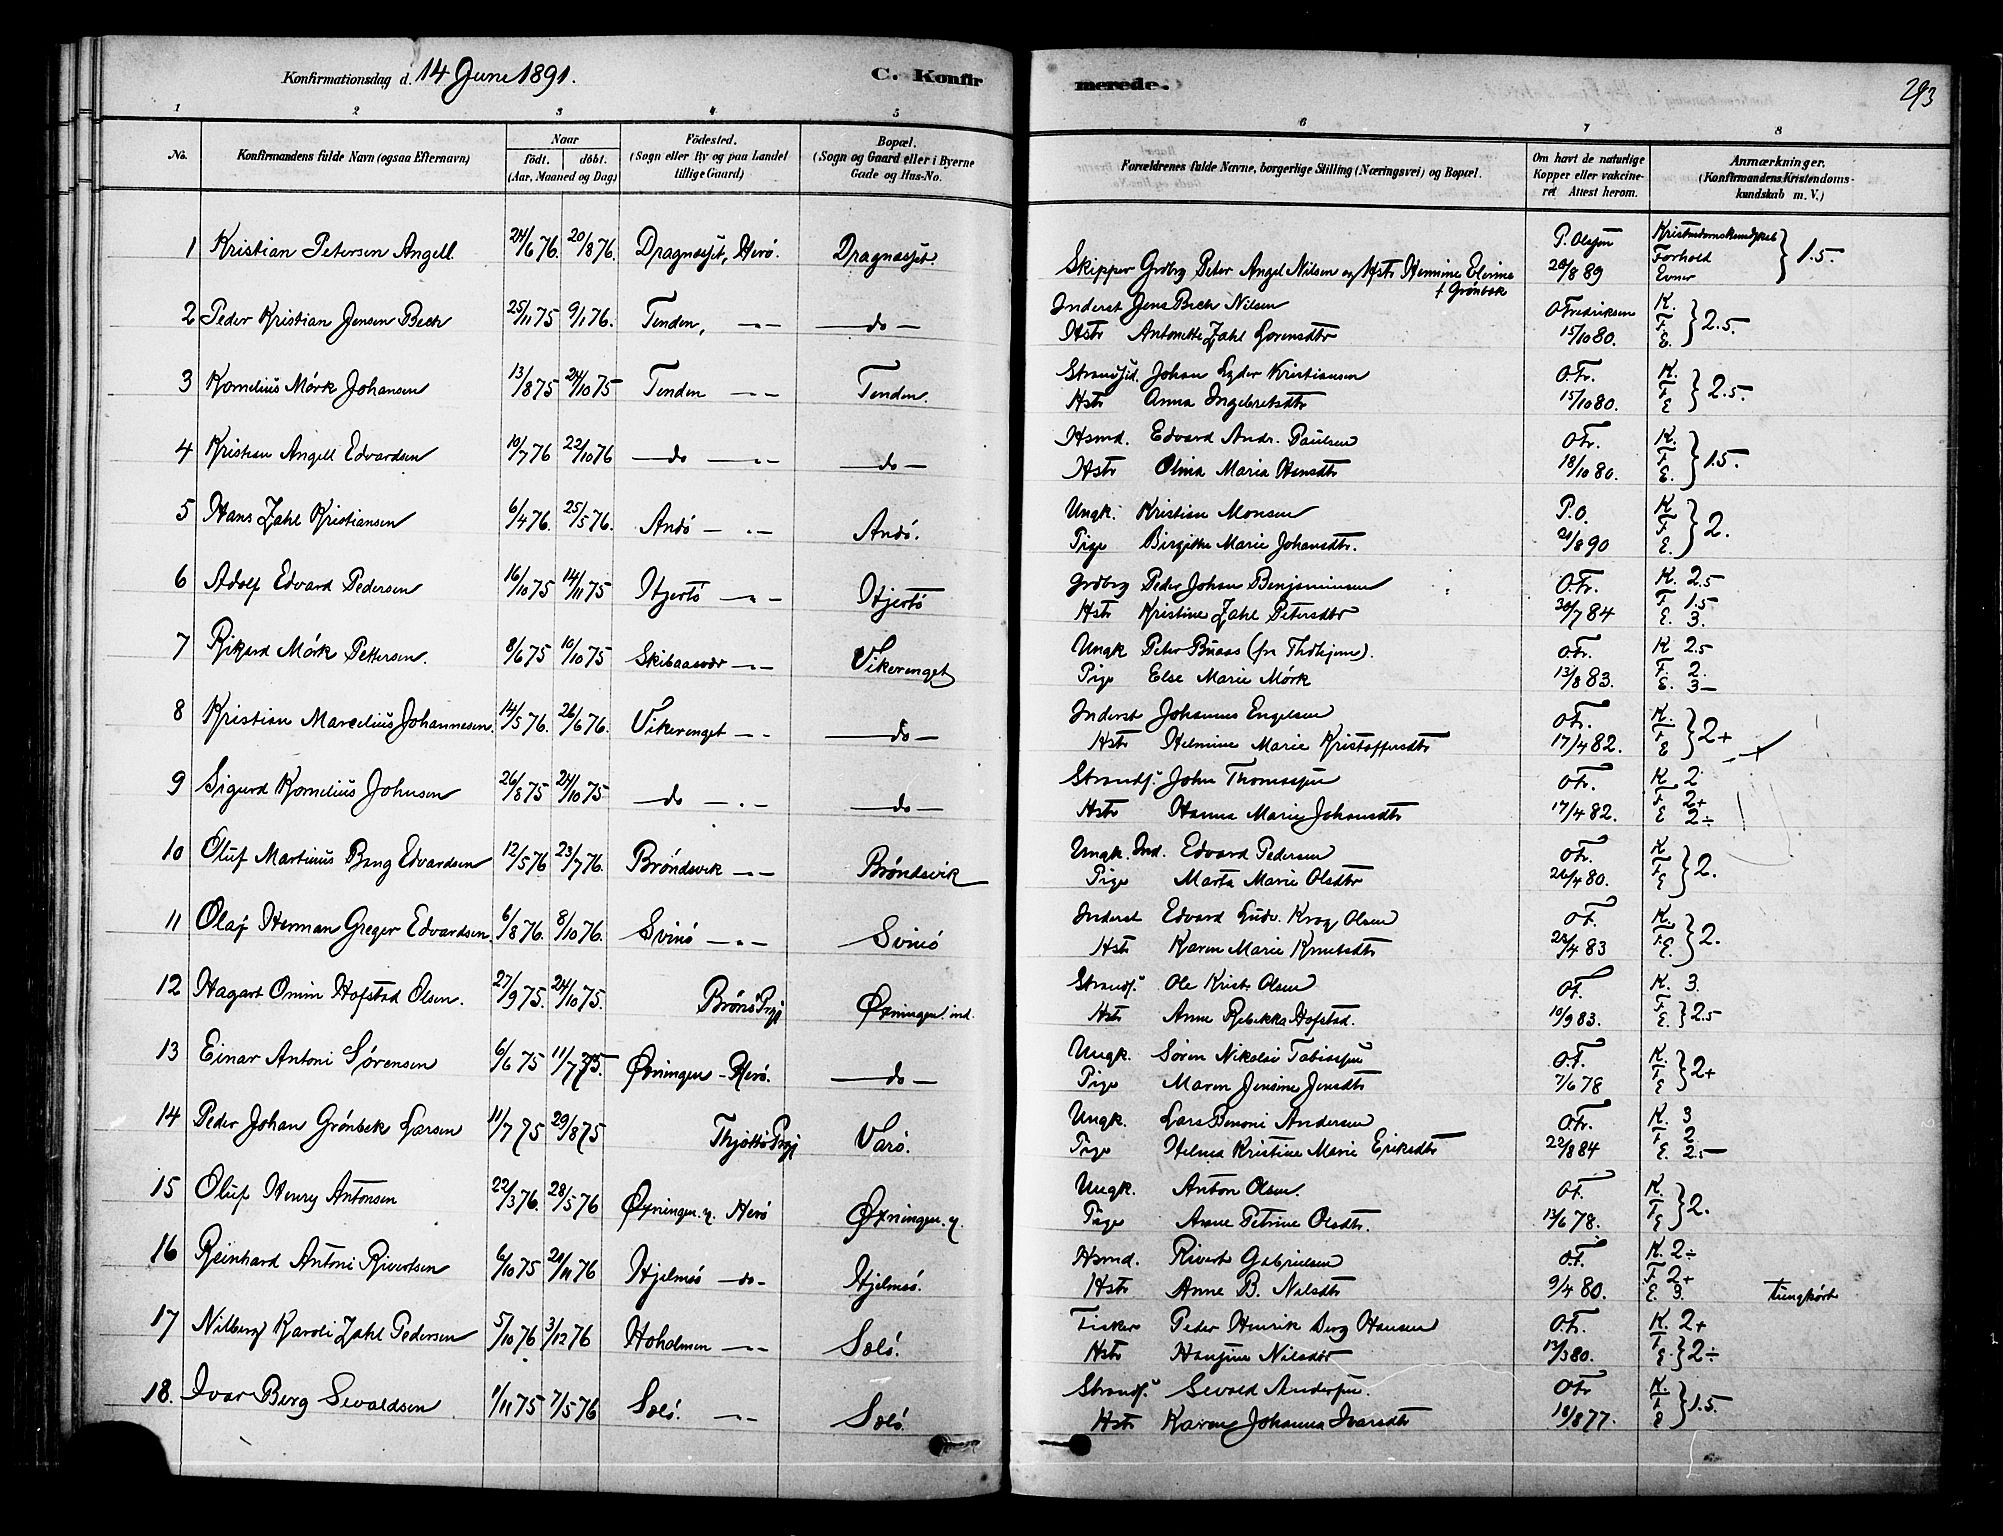 Konfirmationsdag d. 14 Juni 1891. C. Konfir merede. 293
1 2 3 4 5 6 7 8
No. Konfirmandens fulde Navn (ogsaa Efternavn) Naar födt. döbt. (Aar, Maaned og Dag) Födested. (Sogn eller By og paa Landet tillige Gaard) Bopæl. (Sogn og Gaard eller i Byerne Gade og Hus-No. Forældrenes fulde Navne, borgerlige Stilling (Næringsvei) og Bopæl. Om havt de naturlige Kopper eller vakcineret Attest herom. Anmærkninger. (Konfirmandens Kristendomskundskab m. V.)
1 Kristian Petersen Angell. 24/6 76. 20/8 76. Dragnæsset, Herö. Dragnæsset. Skipper Grdbrg Peter Angel Nilsen og Hstr Hennine Elerine P. Olsen 20/8 89 Kristendomskundskab Forhold Evner } 1.5.
† Grönbek
2 Peder Kristian Jensen Bech 25/11 75 9/1 76. Tenden, -"- do Inderst Jens Bech Nilsen O Fredriksen K. F. E. } 2.5.
Hstr Antonette Zahl Lorensdtr 15/10 80.
3 Kornelius Mörk Johansen 13/8 75 24/10 75 Tenden -"- Tenden. Strandsid. Johan Lyder Kristiansen O.Fr. K. F. E } 2.5.
Hstr Anna Ingebretsdtr 15/10 80.
4 Kristian Angell Edvardsen 10/7 76 22/10 76 do -"- do Hsmd. Edvard Andr. Paulsen O Fr. K. F. E. } 1.5.
Hstr Olina Maria Hansdtr 18/10 80.
5 Hans Zahl Kristiansen 6/4 76. 25/5 76. Andö -"- Andö. Ungk. Kristian Monsen P.O. K F. E. } 2.
Pige Birgitte Marie Johansdtr. 21/8 90
6 Adolf Edvard Pedersen 16/10 75 14/11 75 Hjertö -"- Hjertö Grdbrg Peder Johan Benjaminsen O.Fr. K. 2.5 F. 1.5
Hstr Kristine Zahl Petersdtr 30/7 84 E. 3.
7 Rikard Mörk Pettersen. 8/6 75 10/10 75 Skibaasvær -"- Vikerenget Ungk Peter Buaas (fra Thdhjem). O.Fr. K 2.5
Pige Else Marie Mörk 13/8 83. F. 2. E. 3-
8 Kristian Marcelius Johannesen. 14/5 76. 26/6 76. Vikerenget -"- do Inderst Johannes Engelsen O Fr. K. F. E } 2+
Hstr Helmine Marie Kristoffersdtr 17/4 82.
9 Sigurd Kornelius Johnsen 26/8 75 24/10 75 do -"- do Strands. John Thomassen O Fr. K 2 F. 2+
Hstr Hanna Marie Johansdtr 17/4 82. E 2÷
10 Oluf Martinius Bang Edvardsen 12/5 76 23/7 76. Bröndsvik -"- Bröndsvik Ungk. Ind. Edvard Pedersen O Fr. K F. E } 2.
Pige Marta Marie Olsdtr 26/4 80.
11 Olaf Herman Greger Edvardsen. 6/8 76. 8/10 76. Svinö -"- Svinö Inderst Edvard Ludv. Krog Olsen O F. K. F. E. } 2.
Hstr Karen Marie Knutsdtr 23/4 83
12 Hagart Omin Hofstad Olsen. 27/9 75. 24/10 75. Brönö Prgj Öxningen. ind. Strands. Ole Kristr Olsen O F. K. 3.
Hstr Anne Rebekka Hofstad. 10/9 83. F. E. } 2.5
13 Einar Antoni Sörensen 6/6 75 11/7 75. Öxningen - Herö. do Ungk. Sören Nikolai Tobiassen O.F. K. F. E } 2+
Pige Maren Jensine Jensdtr 7/6 78
14 Peder Johan Grönbek Larsen 11/7 75 29/8 75 Thjöttö Prgj Varö. Ungk. Lars Benoni Andersen O Fr. K. 3
Pige Helma Kristine Marie Eriksdtr 22/8 84 F 2 E. 2.5
15 Oluf Henry Antonsen 22/3 76. 28/5 76 Öxningen. y. Herö Öxningen. y. Ungk. Anton Olsen. O F. K. F. E } 2.
Pige Anne Petrine Olsdtr. 13/6 78.
16 Reinhard Antoni Rivertsen 6/10 75 20/11 76 Hjelmsö -do- Hjelmsö. Hsmd. Rivert Gabrielsen O.F. K. 2÷
Hstr Anne B. Nilsdtr 9/4 80. F 2+ E. 3. tunghört
17 Nilberg Karoli Zahl Pedersen 5/10 76 3/12 76 Hoholmen -"- Solö. Fisker Peder Henrik Berg Hansen O.Fr. K. 2+
Hstr Hansine Nilsdtr 13/3 80. F. E. } 2÷
18. Ivar Berg Sevaldsen 1/11 75 7/5 76 Solö. -"- Solö. Strands. Sevald Andersen. O Fr K. F E } 1.5.
Hstr Karen Johanna Ivarsdtr 18/8 77.